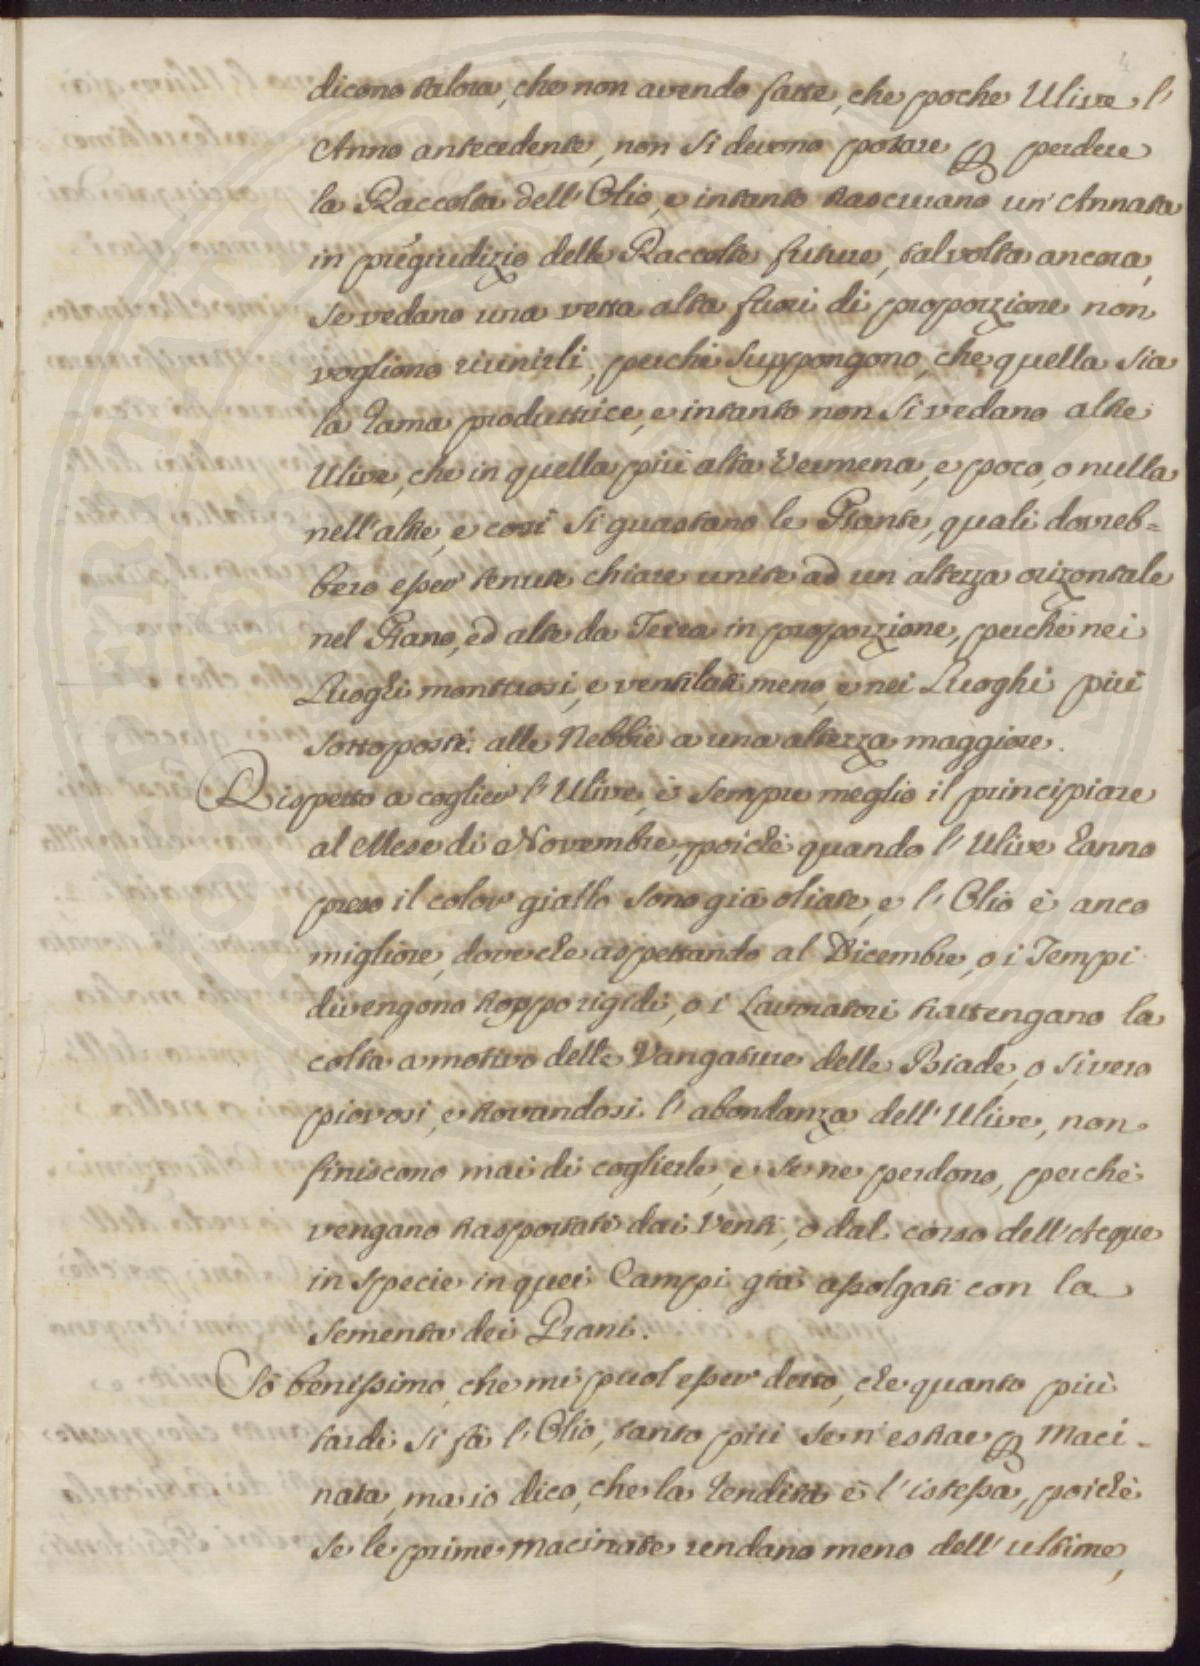 4
dicono talora, che non avendo fatte, che poche Ulive l'
Anno antecedente, non si devono potare p perdere
la Raccolta dell'Olio, e intanto trascurano un'Annata
in pregiudizio delle Raccolte future, talvolta ancora,
se vedano una vetta alta fuori di proporzione non
vogliono riunirli, perchè suppongono, che quella sia
la rama produttrice, e intanto non si vedano altre
Ulive, che in quella più alta Vermena, e poco, o nulla
nell'altre, e così si guastano le Piante, quali dovreb=
bero esser tenute chiare unite ad un altezza orizontale
nel Piano, ed alte da Terra in proporzione, perchè nei
Luoghi montuosi, e ventilati meno, e nei Luoghi più
sottoposti alle Nebbie a una altezza maggiore.
Rispetto a coglier l'Ulive, è sempre meglio il principiare
al Mese di Novembre, poichè quando l'Ulive hanno
preso il color giallo sono già oliate, e l'Olio è anco
migliore, dove che aspettando al Dicembre, o i Tempi
divengono troppo rigidi, o i Lavoratori trattengano la
colta a motivo delle Vangature delle Biade, o sivero
piovosi, e trovandosi l'abondanza dell'Ulive, non
finiscono mai di coglierle, e se ne perdono, perchè
vengano trasportate dai Venti, o dal corso dell'Acque
in specie in quei Campi già assolgati con la
sementa dei Grani.
Sò benissimo, che mi puol esser detto, che quanto più
tardi si fà l'Olio, tanto più se n'estrae p Maci=
nata, ma io dico, che la rendita è l'istessa, poichè
se le prime macinate rendano meno dell'ultime,